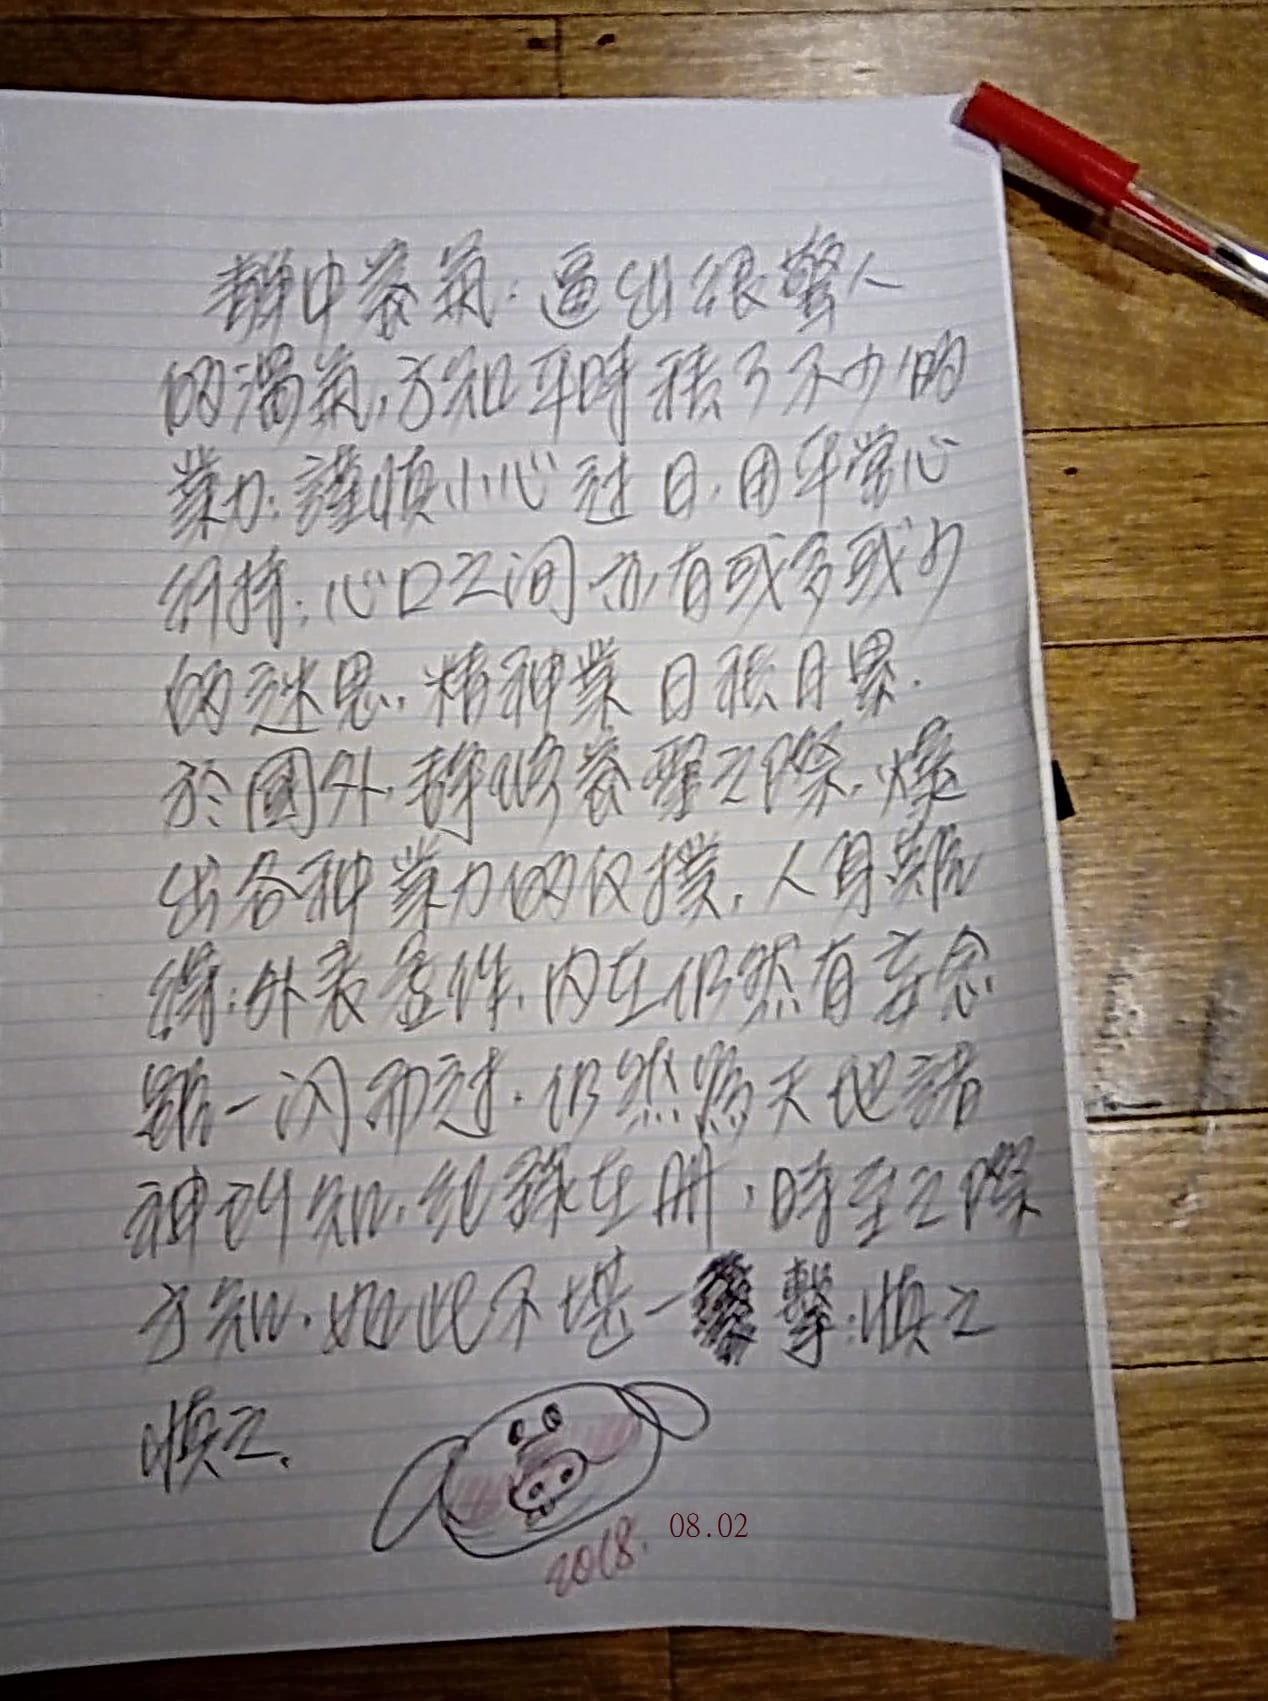 靜中養氣．逼出很驚人
的濁氣，方知平時積了不少的
業力；謹慎小心過日．用平常心
修持；心口之间亦有或多或少
的迷思．精神業日積月累．
於國外．靜修養聖之際．爆
出各种業力的反撲．人身難
得；外表條件．內在仍然有妄念
雖一闪而过．仍然為天地諸
神所知．紀錄在冊，時至之際
方知．如此不堪一擊；慎之
慎之．
2018. 08.02